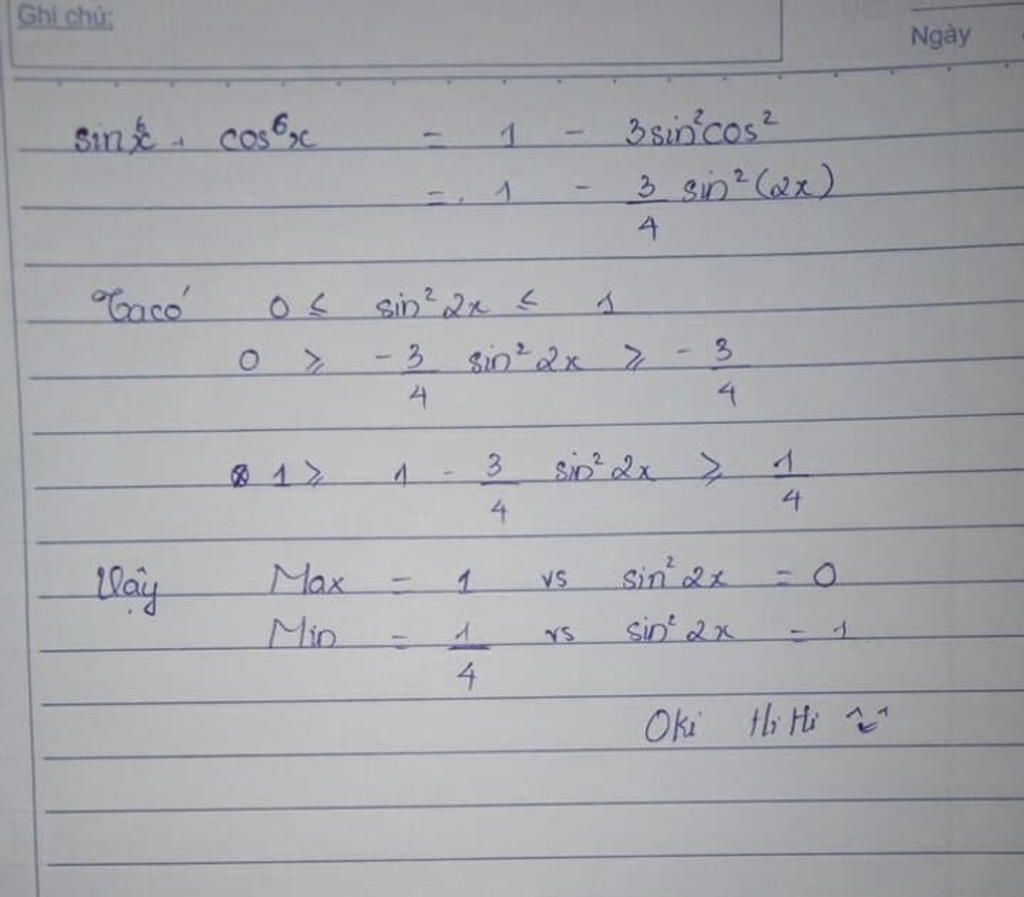 Ghi chú:
Ngày
sin⁶x + cos⁶x = 1 - 3sin²cos²
= 1 - 3/4 sin²(2x)
Ta có 0 ≤ sin²2x ≤ 1
0 ⩾ -3/4 sin²2x ⩾ -3/4
1 ⩾ 1 - 3/4 sin²2x ⩾ 1/4
Vậy Max = 1 vs sin²2x = 0
Min = 1/4 vs sin²2x = 1
Oki Hi Hi